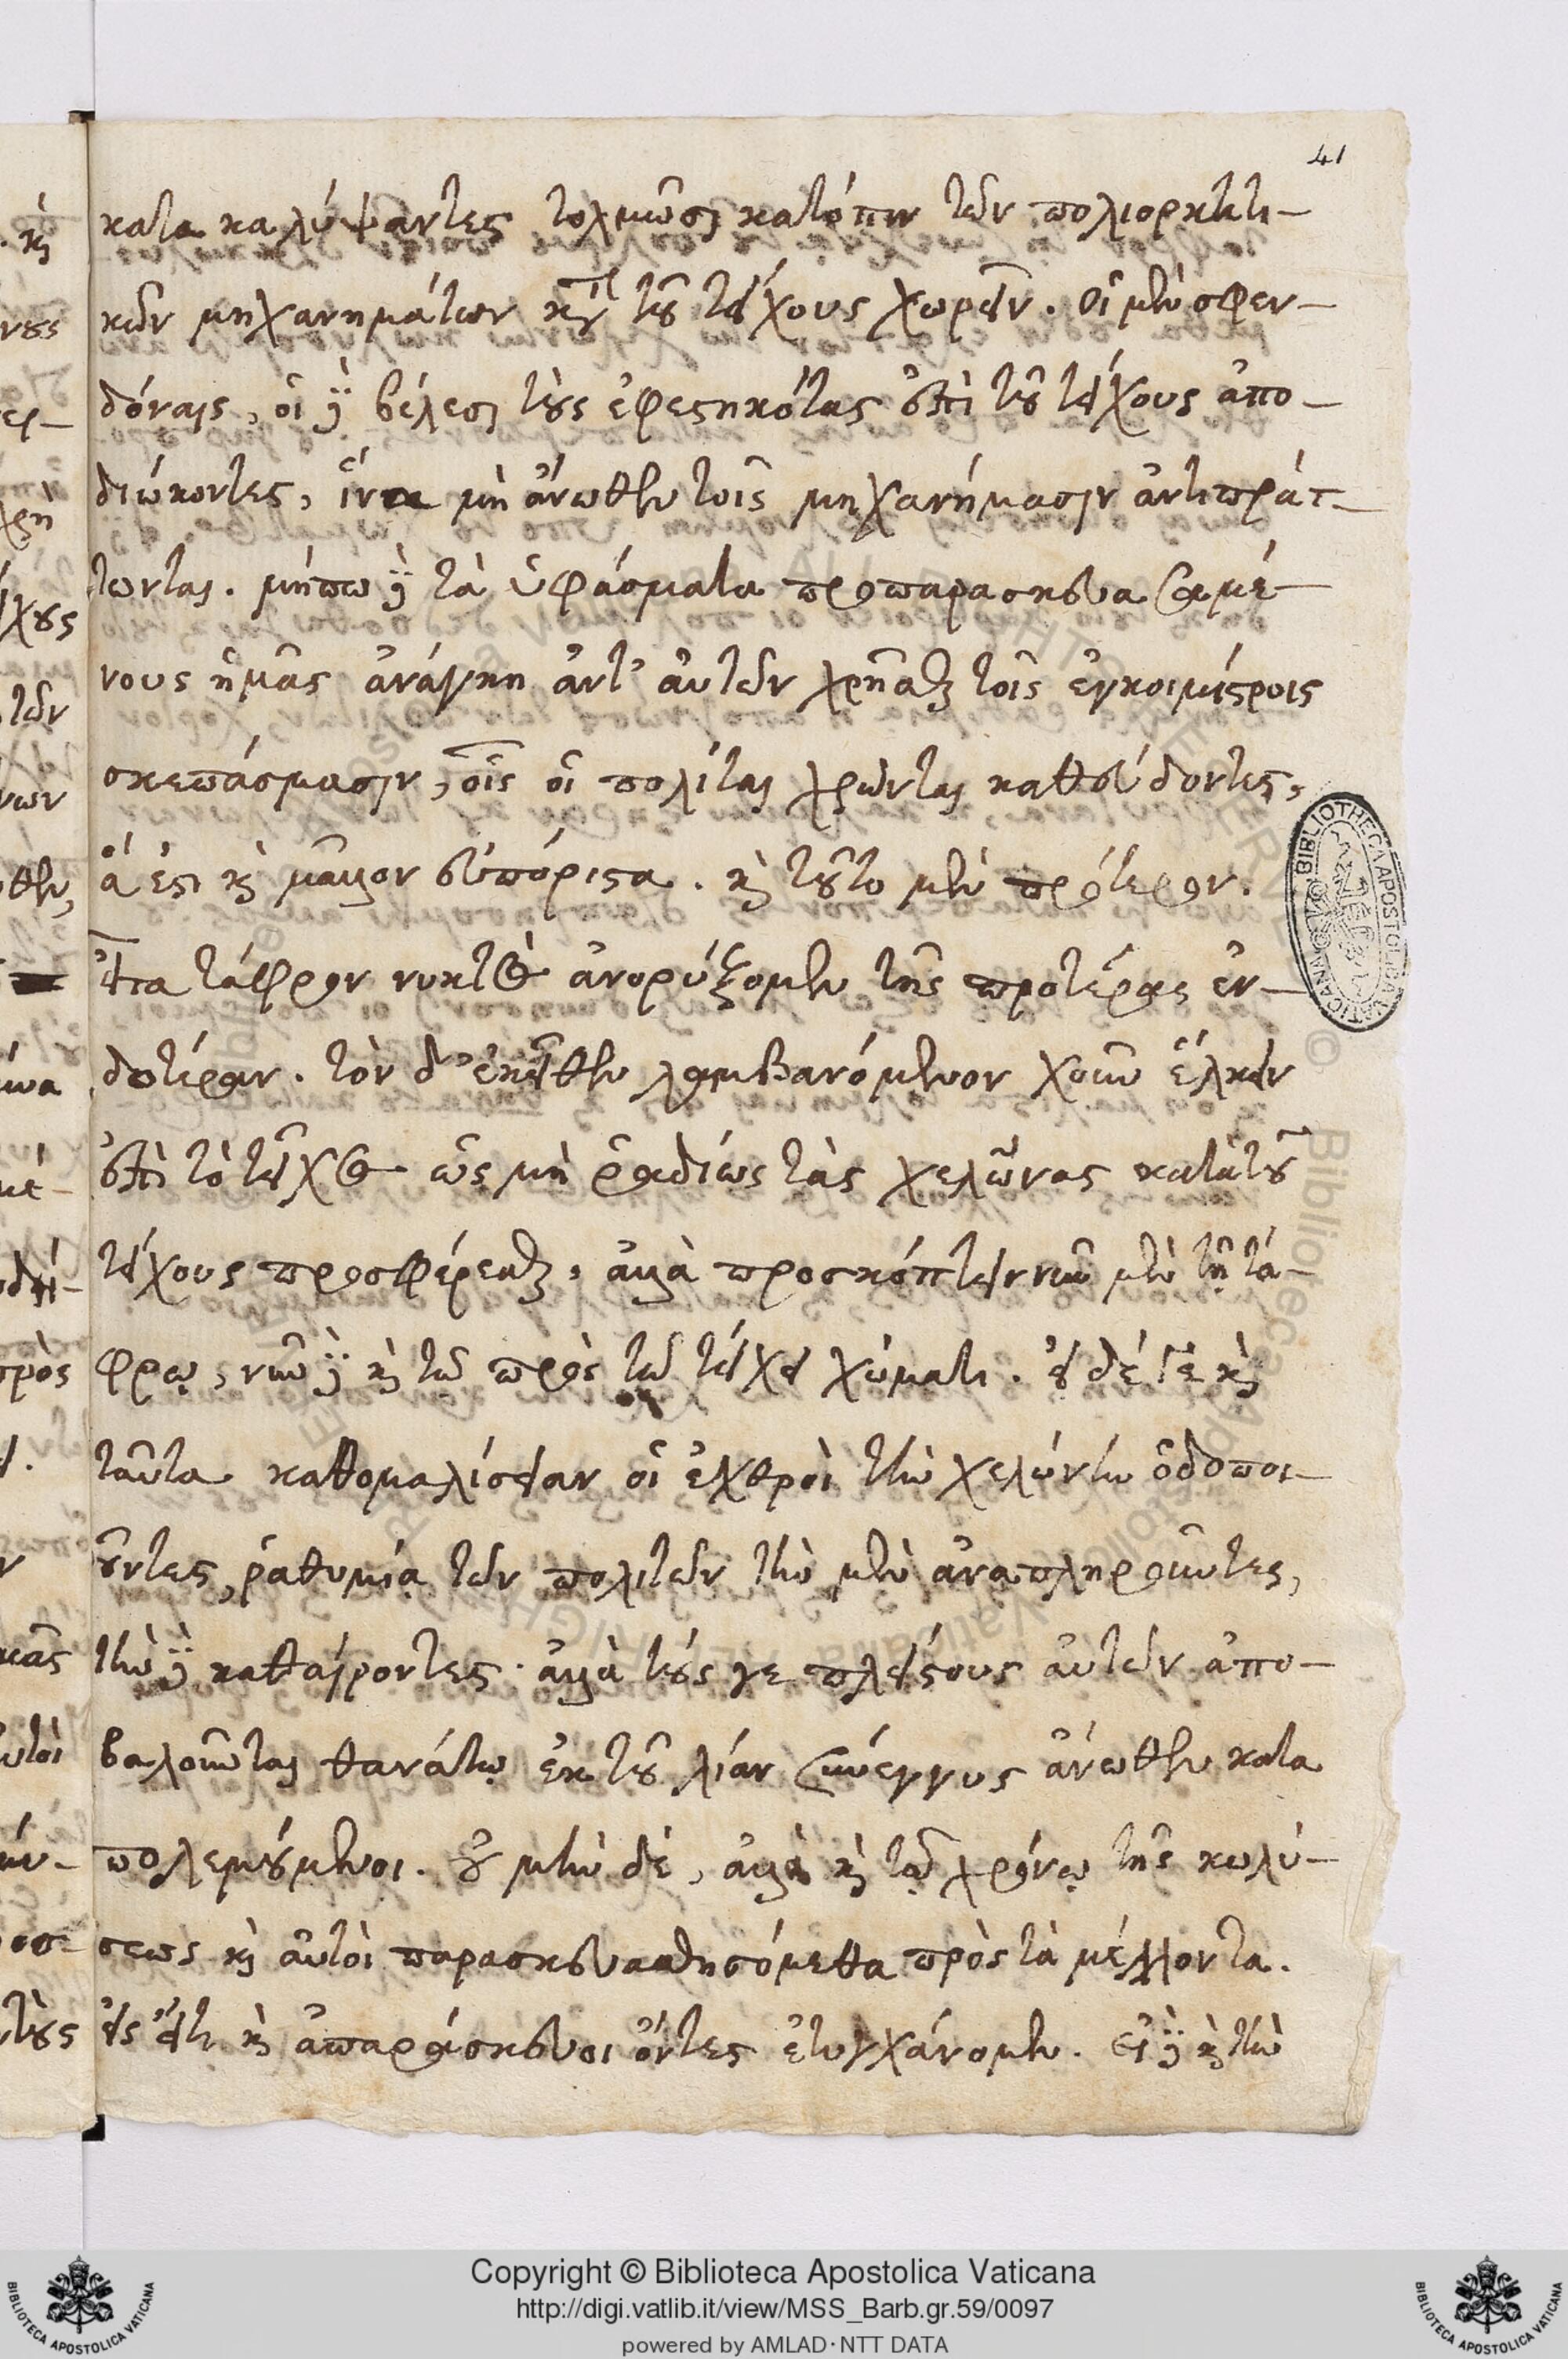 41
κατα καλύψαντες τολμῶσι κατόπιν τῶν πολιορκητι-
κῶν μηχανημάτων κατὰ τοῦ τείχους χωρεῖν. οἱ μὲν σφεν-
δόναις, οἱ δὲ βέλεσι τοὺς ἐφεστηκότας ἐπὶ τοῦ τείχους ἀπο-
διώκοντες, ἵνα μὴ ἄνωθεν τοῖς μηχανήμασιν ἀντιπράτ-
τωνται. μήπω δὲ τὰ ὑφάσματα προπαρασκευασαμέ-
νους ἡμᾶς ἀνάγκη ἀντ' αὐτῶν χρῆσθαι τοῖς ἐγκοιμίστροις
σκεπάσμασιν, οἷς οἱ πολίται χρῶνται καθεύδοντες,
ἅ ἐστι καὶ μᾶλλον εὐπόριστα. καὶ τοῦτο μὲν πρότερον.
εἶτα τάφρον νυκτὸς ἀνορύξομεν τῆς προτέρας ἐν-
δοτέραν. τὸν δ' ἐκεῖθεν λαμβανόμενον χοῦν ἕλκειν
ἐπὶ τὸ τεῖχος ὡς μὴ ῥαδίως τὰς χελώνας κατὰ τοῦ
τείχους προσφέρεσθαι, ἀλλὰ προσκόπτειν νῦν μὲν τῇ τά-
φρῳ, νῦν δὲ καὶ τῷ πρὸς τῷ τείχει χώματι. εἰ δέ γε καὶ
ταῦτα καθομαλίσειαν οἱ ἐχθροὶ τὴν χελώνην ὁδοποι-
οῦντες, ῥαθυμίᾳ τῶν πολιτῶν τὴν μὲν ἀναπληροῦντες,
τὴν δὲ καθαίροντες· ἀλλὰ τούς γε πλείστους αὐτῶν ἀπο-
βαλοῦνται θανάτῳ ἐκ τοῦ λίαν σύνεγγυς ἄνωθεν κατα
πολεμούμενοι. οὐ μὴν δὲ, ἀλλὰ καὶ τῷ χρόνῳ τῆς κωλύ-
σεως καὶ αὐτοὶ παρασκευασθησόμεθα πρὸς τὰ μέλλοντα.
εἰς ἔτι καὶ ἀπαράσκευοι ὄντες ἐτυγχάνομεν. εἰ δὲ καὶ τὴν
Copyright © Biblioteca Apostolica Vaticana
http://digi.vatlib.it/view/MSS_Barb.gr.59/0097
powered by AMLAD·NTT DATA